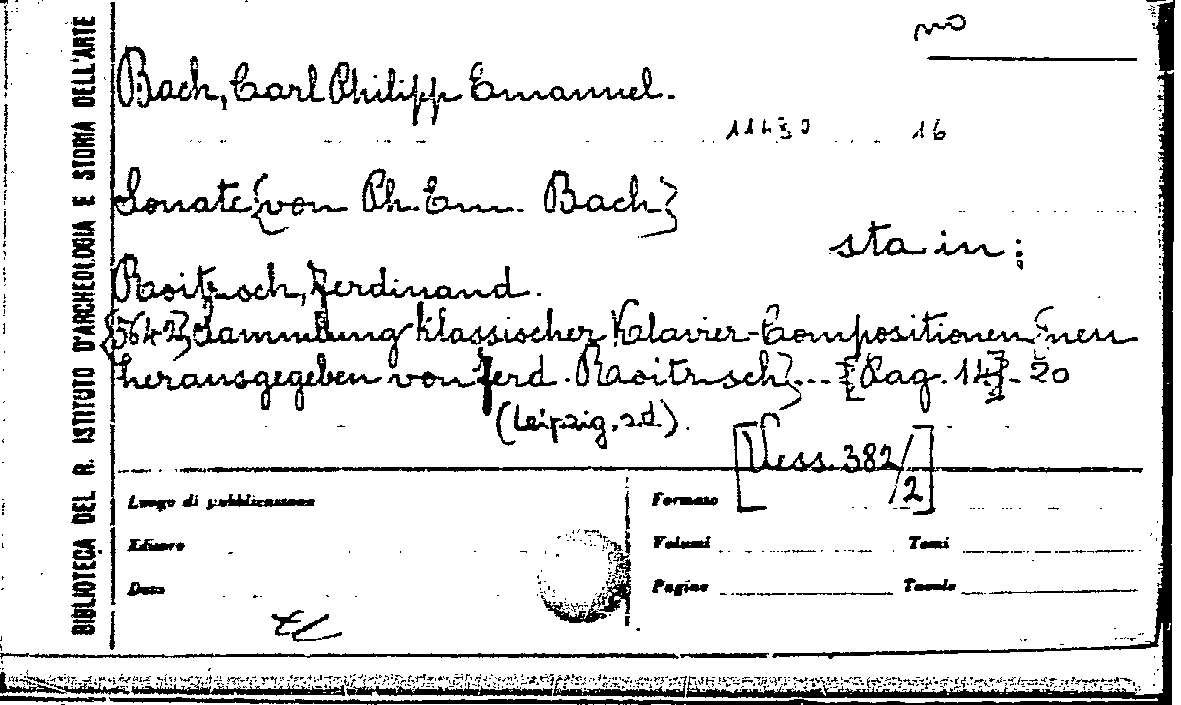 BIBLIOTECA DEL R. ISTITUTO D'ARCHEOLOGIA E STORIA DELL'ARTE
mo
Bach, Carl Philipp Emanuel.
11430 16
Sonate {von Ph. Em. Bach}
sta in:
Roitzsch, Ferdinand.
{5642} Sammlung klassischer Klavier-Compositionen {neu
herausgegeben von Ferd. Roitzsch}... [Pag. 14]-20
(Leipzig, s.d.).
[Vess. 382/2]
Luogo di pubblicazione
Formato
Editore
Volumi Tomi
Data
Pagine Tavole